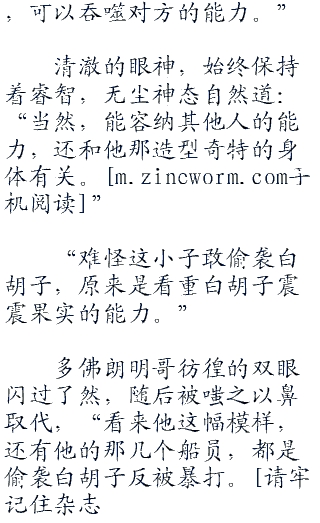 ，可以吞噬对方的能力。”
清澈的眼神，始终保持
着睿智，无尘神态自然道：
“当然，能容纳其他人的能
力，还和他那造型奇特的身
体有关。[m.zincworm.com手
机阅读]”
“难怪这小子敢偷袭白
胡子，原来是看重白胡子震
震果实的能力。”
多佛朗明哥彷徨的双眼
闪过了然，随后被嗤之以鼻
取代，“看来他这幅模样，
还有他的那几个船员，都是
偷袭白胡子反被暴打。[请牢
记住杂志